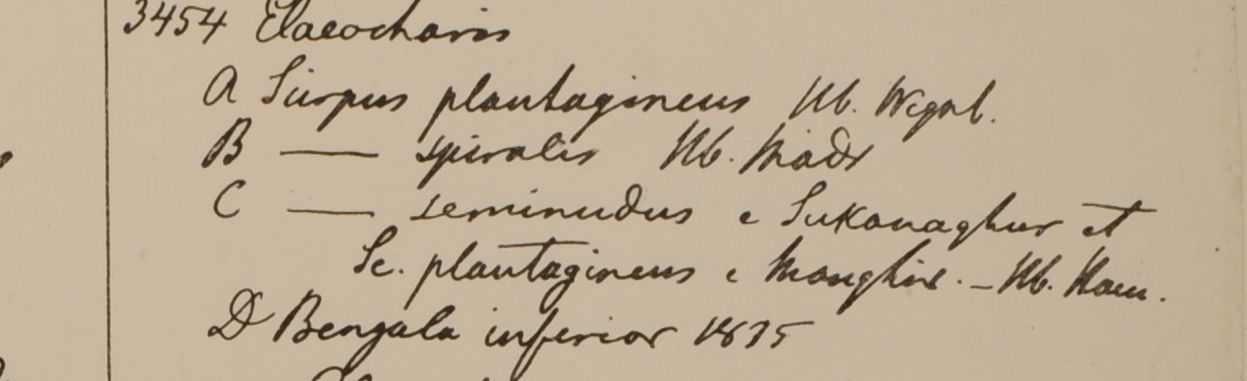 3454 Elaeocharis
A Scirpus plantagineus Hb. Wight.
B — spiralis Hb. Madr
C — seminudus e Sukanaghur et
Sc. plantagineus e Monghir. — Hb. Ham.
D Bengala inferior 1835